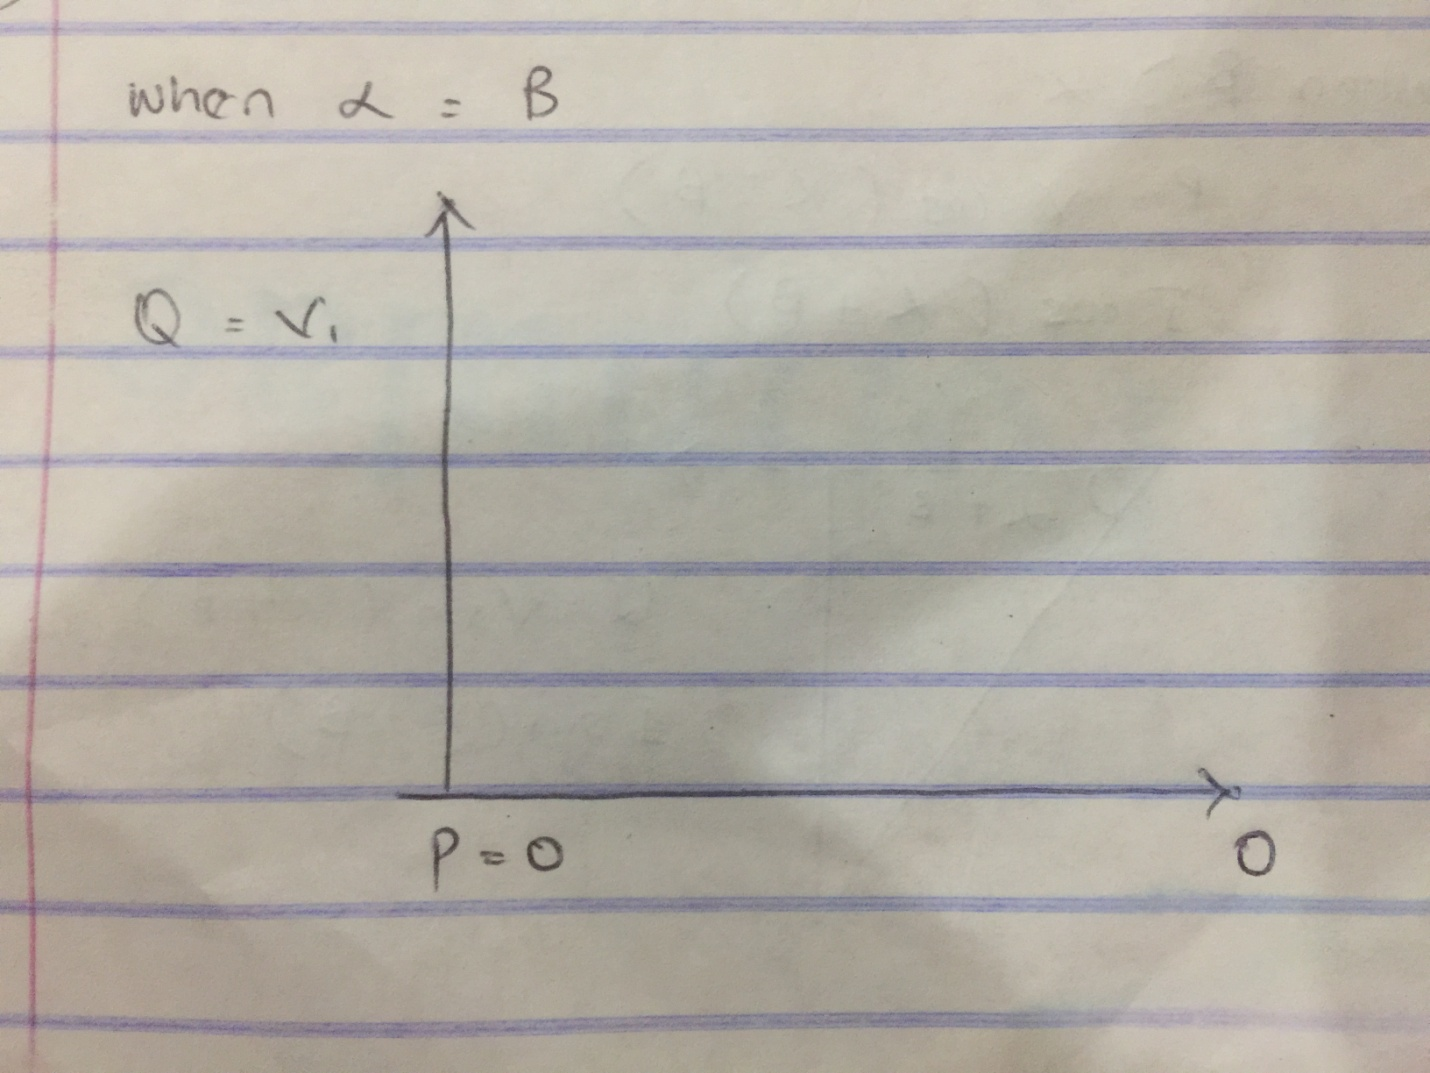 when α = B
Q = V₁
P = 0
O